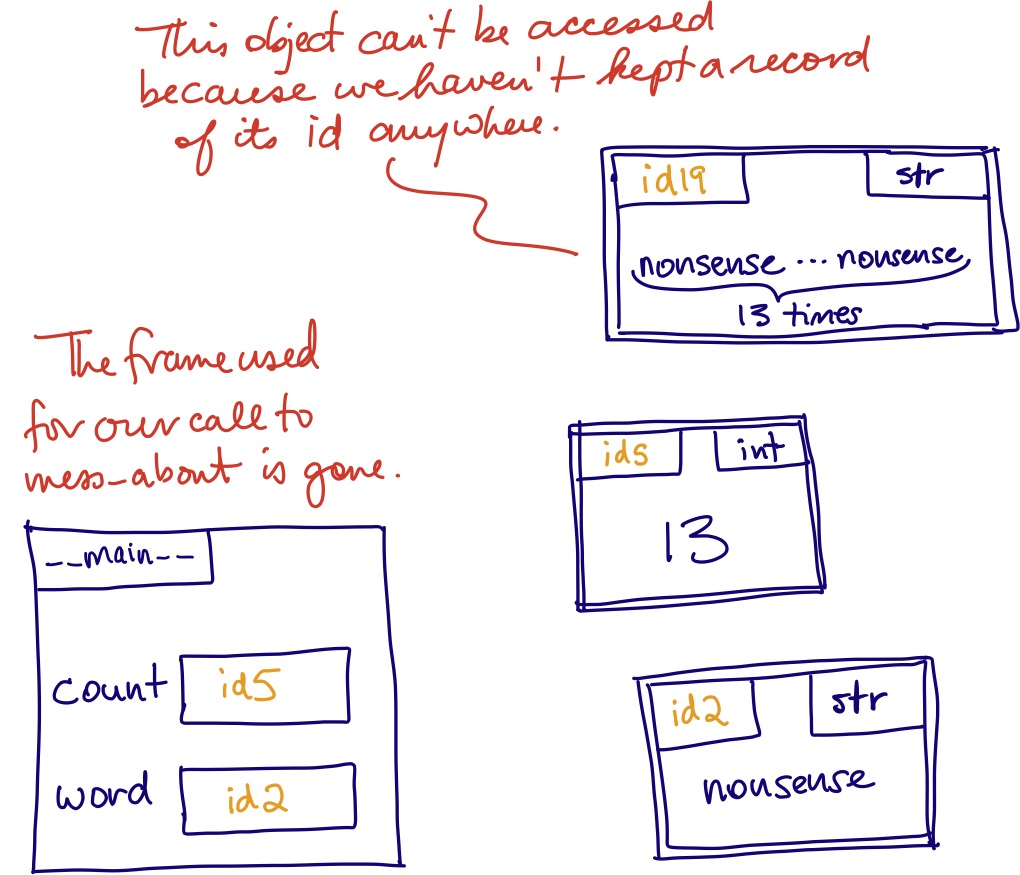 This object can't be accessed
because we haven't kept a record
of its id anywhere.
id19
str
nonsense ... nonsense
13 times
The frame used
for our call to
mess_about is gone.
id5
int
13
__main__
count
id5
word
id2
id2
str
nonsense